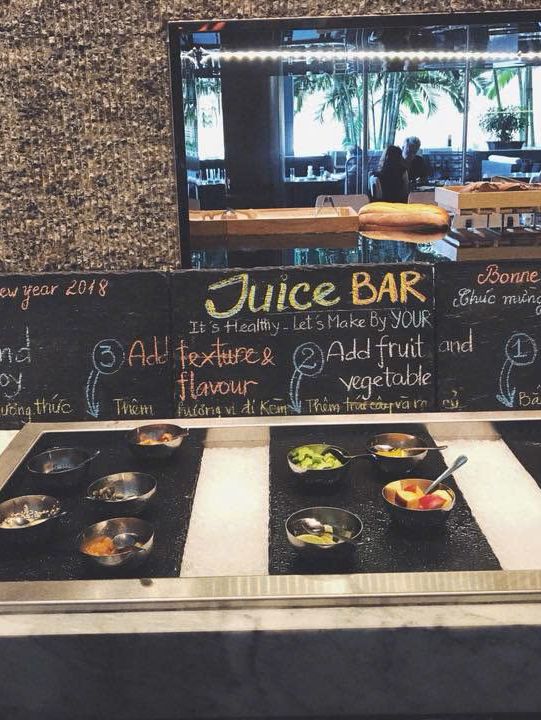 ew year 2018
Juice BAR
Bonne
Chúc mừng
It's Healthy - Let's Make By YOUR
nd
oy
ưởng thức
3 Add texture &
flavour
Thêm hương vị
2 Add fruit and
vegetable
Thêm trái cây và rau củ
1